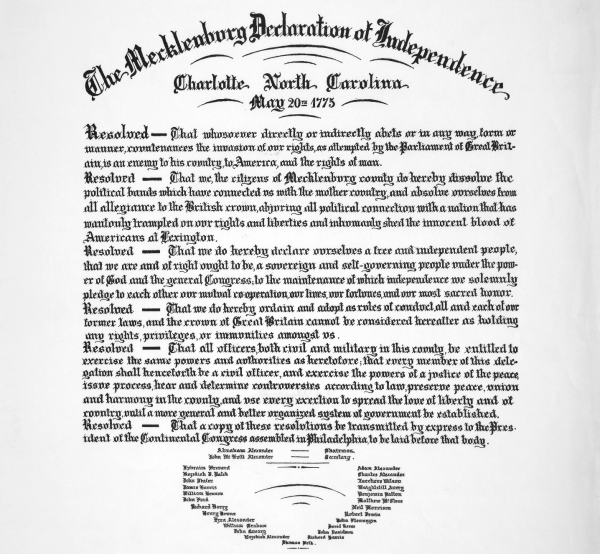 The Mecklenburg Declaration of Independence
Charlotte North Carolina
May 20th 1775
Resolved — That whosoever directly or indirectly abets or in any way, form or
manner, countenances the invasion of our rights, as attempted by the Parliament of Great Brit-
ain, is an enemy to his country, to America, and the rights of man.
Resolved — That we, the citizens of Mecklenburg county do hereby dissolve the
political bands which have connected us with the mother country, and absolve ourselves from
all allegiance to the British crown, abjuring all political connection with a nation that has
wantonly trampled on our rights and liberties and inhumanly shed the innocent blood of
Americans at Lexington.
Resolved — That we do hereby declare ourselves a free and independent people,
that we are and of right ought to be, a sovereign and self-governing people under the pow-
er of God and the general Congress; to the maintenance of which independence we solemnly
pledge to each other our mutual co-operation, our lives, our fortunes, and our most sacred honor.
Resolved — That we do hereby ordain and adopt as rules of conduct, all and each of our
former laws, and the crown of Great Britain cannot be considered hereafter as holding
any rights, privileges, or immunities amongst us.
Resolved — That all officers, both civil and military in this county, be entitled to
exercise the same powers and authorities as heretofore; that every member of this dele-
gation shall henceforth be a civil officer, and exercise the powers of a justice of the peace,
issue process, hear and determine controversies according to law, preserve peace, union
and harmony in the county, and use every exertion to spread the love of liberty and of
country, until a more general and better organized system of government be established.
Resolved — That a copy of these resolutions be transmitted by express to the Pres-
ident of the Continental Congress assembled in Philadelphia, to be laid before that body.
Abraham Alexander — Chairman.
John McNitt Alexander — Secretary.
Ephraim Brevard Adam Alexander
Hezekiah J. Balch Charles Alexander
John Phifer Zaccheus Wilson
James Harris Waightstill Avery
William Kennon Benjamin Patton
John Ford Matthew McClure
Richard Barry Neil Morrison
Henry Downs Robert Irwin
Ezra Alexander John Flennegin
William Graham David Reese
John Queary John Davidson
Hezekiah Alexander Richard Harris
Thomas Polk.